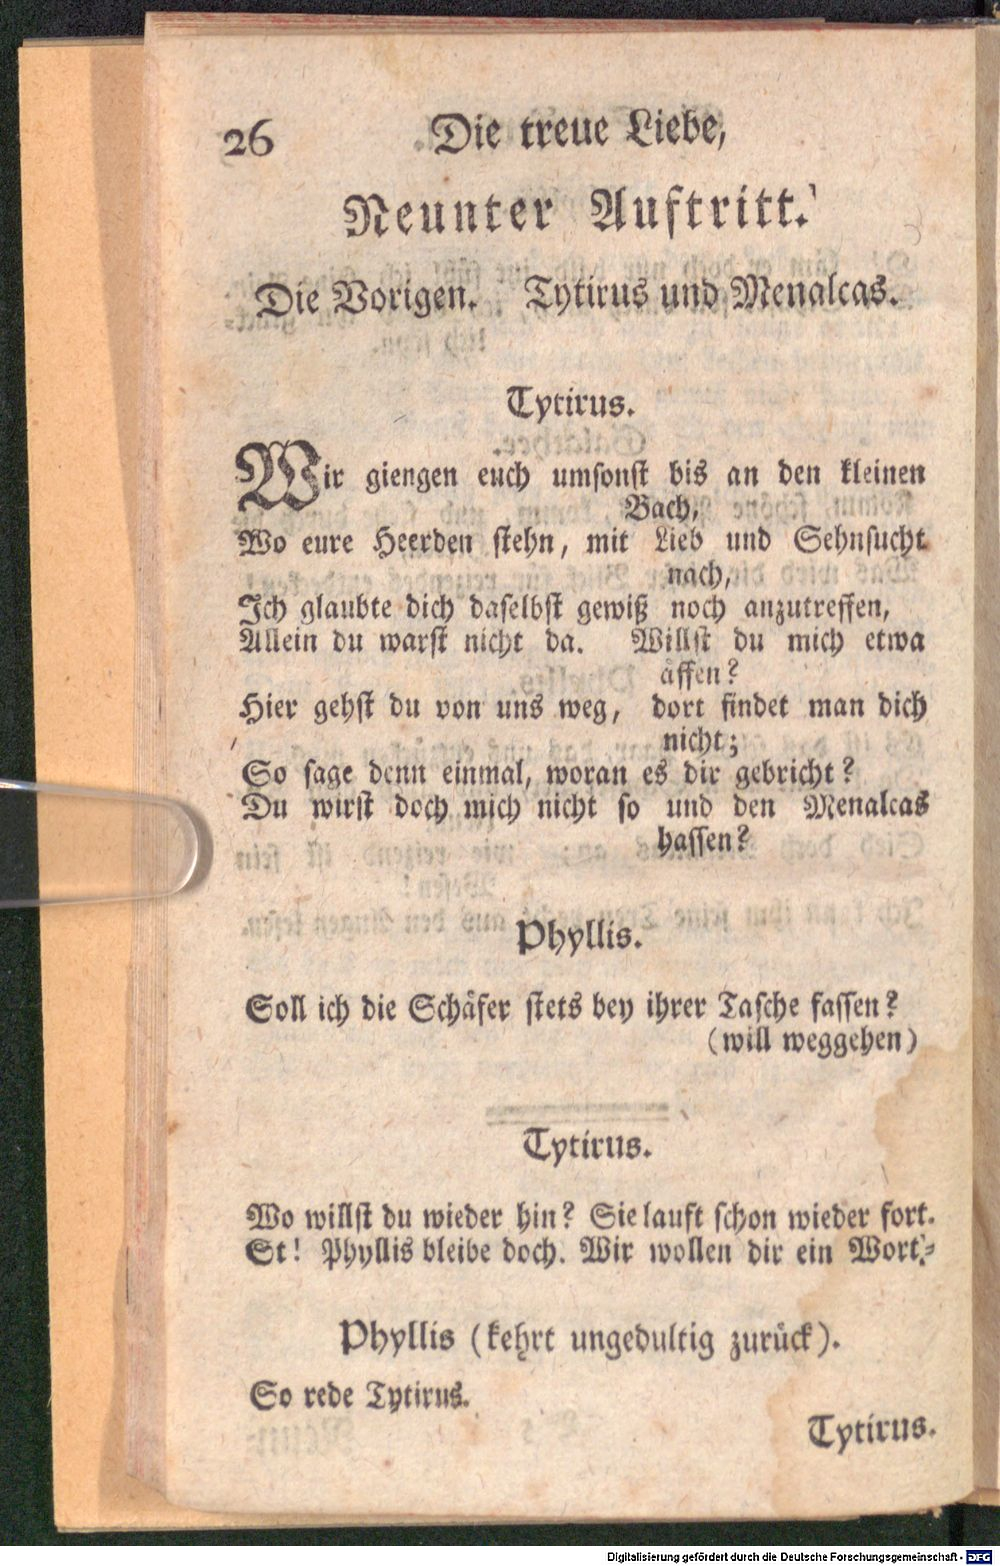 26 Die treue Liebe,
Neunter Auftritt.
Die Vorigen. Tytirus und Menalcas.
Tytirus.
Wir giengen euch umsonst bis an den kleinen
Bach,
Wo eure Heerden stehn, mit Lieb und Sehnsucht
nach,
Ich glaubte dich daselbst gewiß noch anzutreffen,
Allein du warst nicht da. Willst du mich etwa
äffen?
Hier gehst du von uns weg, dort findet man dich
nicht;
So sage denn einmal, woran es dir gebricht?
Du wirst doch mich nicht so und den Menalcas
hassen?
Phyllis.
Soll ich die Schäfer stets bey ihrer Tasche fassen?
(will weggehen)
Tytirus.
Wo willst du wieder hin? Sie lauft schon wieder fort.
St! Phyllis bleibe doch. Wir wollen dir ein Wort-
Phyllis (kehrt ungedultig zurück).
So rede Tytirus.
Tytirus.
Digitalisierung gefördert durch die Deutsche Forschungsgemeinschaft - DFG